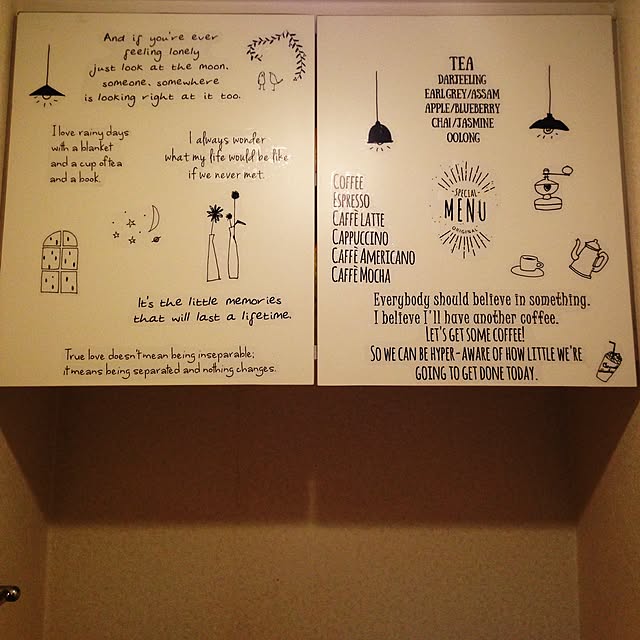 And if you're ever
feeling lonely
just look at the moon.
someone, somewhere
is looking right at it too.
I love rainy days
with a blanket
and a cup of tea
and a book.
I always wonder
what my life would be like
if we never met.
It's the little memories
that will last a lifetime.
True love doesn't mean being inseparable;
it means being separated and nothing changes.
TEA
DARJEELING
EARLGREY/ASSAM
APPLE/BLUEBERRY
CHAI/JASMINE
OOLONG
COFFEE
ESPRESSO
CAFFÈ LATTE
CAPPUCCINO
CAFFÈ AMERICANO
CAFFÈ MOCHA
SPECIAL
MENU
ORIGINAL
Everybody should believe in something.
I believe I'll have another coffee.
LET'S GET SOME COFFEE!
SO WE CAN BE HYPER-AWARE OF HOW LITTLE WE'RE
GOING TO GET DONE TODAY.